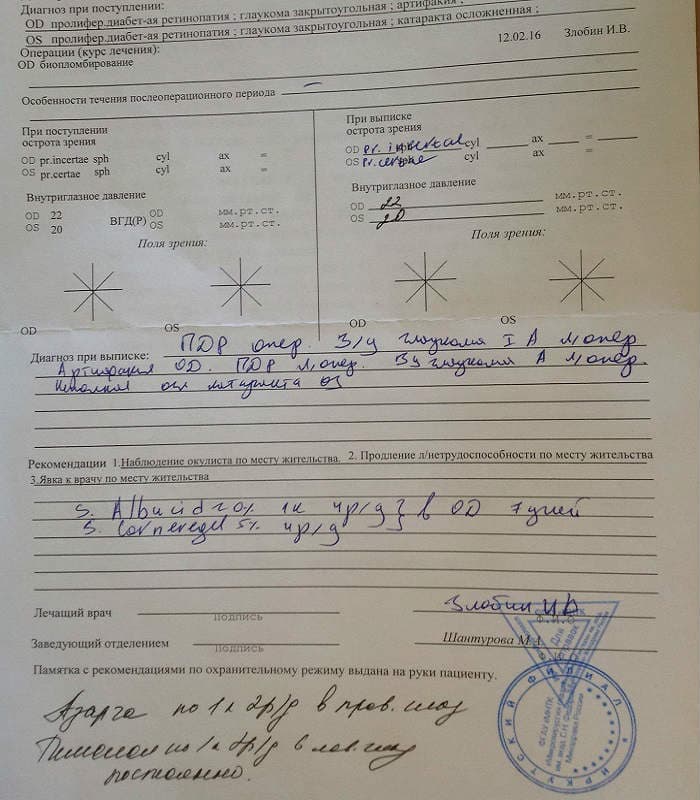 Диагноз при поступлении:
OD пролифер.диабет-ая ретинопатия ; глаукома закрытоугольная ; артифакия ;
OS пролифер.диабет-ая ретинопатия ; глаукома закрытоугольная ; катаракта осложненная ;
Операции (курс лечения): 12.02.16 Злобин И.В.
OD биопломбирование
Особенности течения послеоперационного периода –
При поступлении
острота зрения
OD pr.incertae sph cyl ax =
OS pr.certae sph cyl ax =
Внутриглазное давление
OD 22 ВГД(Р) OD мм.рт.ст.
OS 20 OS мм.рт.ст.
Поля зрения:
OD OS
При выписке
острота зрения
OD pr. sph cyl ax =
OS pr. sph cyl ax =
Внутриглазное давление
OD 22 мм.рт.ст.
OS 20 мм.рт.ст.
Поля зрения:
OD OS
Диагноз при выписке: ПДР опер. З/у глаукома I А н/опер
Артифакия OD. ПДР н/опер. Зу глаукома А н/опер
катаракта OS
Рекомендации 1.Наблюдение окулиста по месту жительства. 2. Продление л/нетрудоспособности по месту жительства
3.Явка к врачу по месту жительства
S. Albucid 20% 1к 4р/д } в OD 7 дней
S. Corneregel 5% 4р/д }
Лечащий врач Злобин И.В
подпись Ф.И.О
Заведующим отделением Шантурова М.А.
подпись
Памятка с рекомендациями по охранительному режиму выдана на руки пациенту.
Азарга по 1к 2р/д в прав. глаз
Тимолол по 1к 2р/д в лев. глаз
постоянно.
Для справок
ИРКУТСКИЙ ФИЛИАЛ